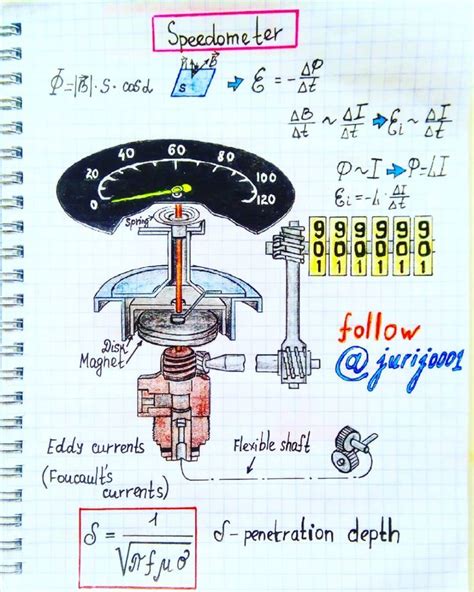 Speedometer
Φ=|B⃗|·S·cosα
n⃗ B⃗
S
⇒ Ɛ = -ΔΦ/Δt
ΔB/Δt ~ ΔI/Δt ⇒ Ɛi ~ ΔI/Δt
Φ~I ⇒ Φ=LI
Ɛi=-L·ΔI/Δt
0 20 40 60 80 100 120
Spring
9 9 9 9 9 9
0 0 0 0 0 0
1 1 1 1 1 1
Disk
Magnet
follow
@jurij0001
Eddy currents
(Foucault's
currents)
Flexible shaft
δ = 1/√πfμσ
δ-penetration depth